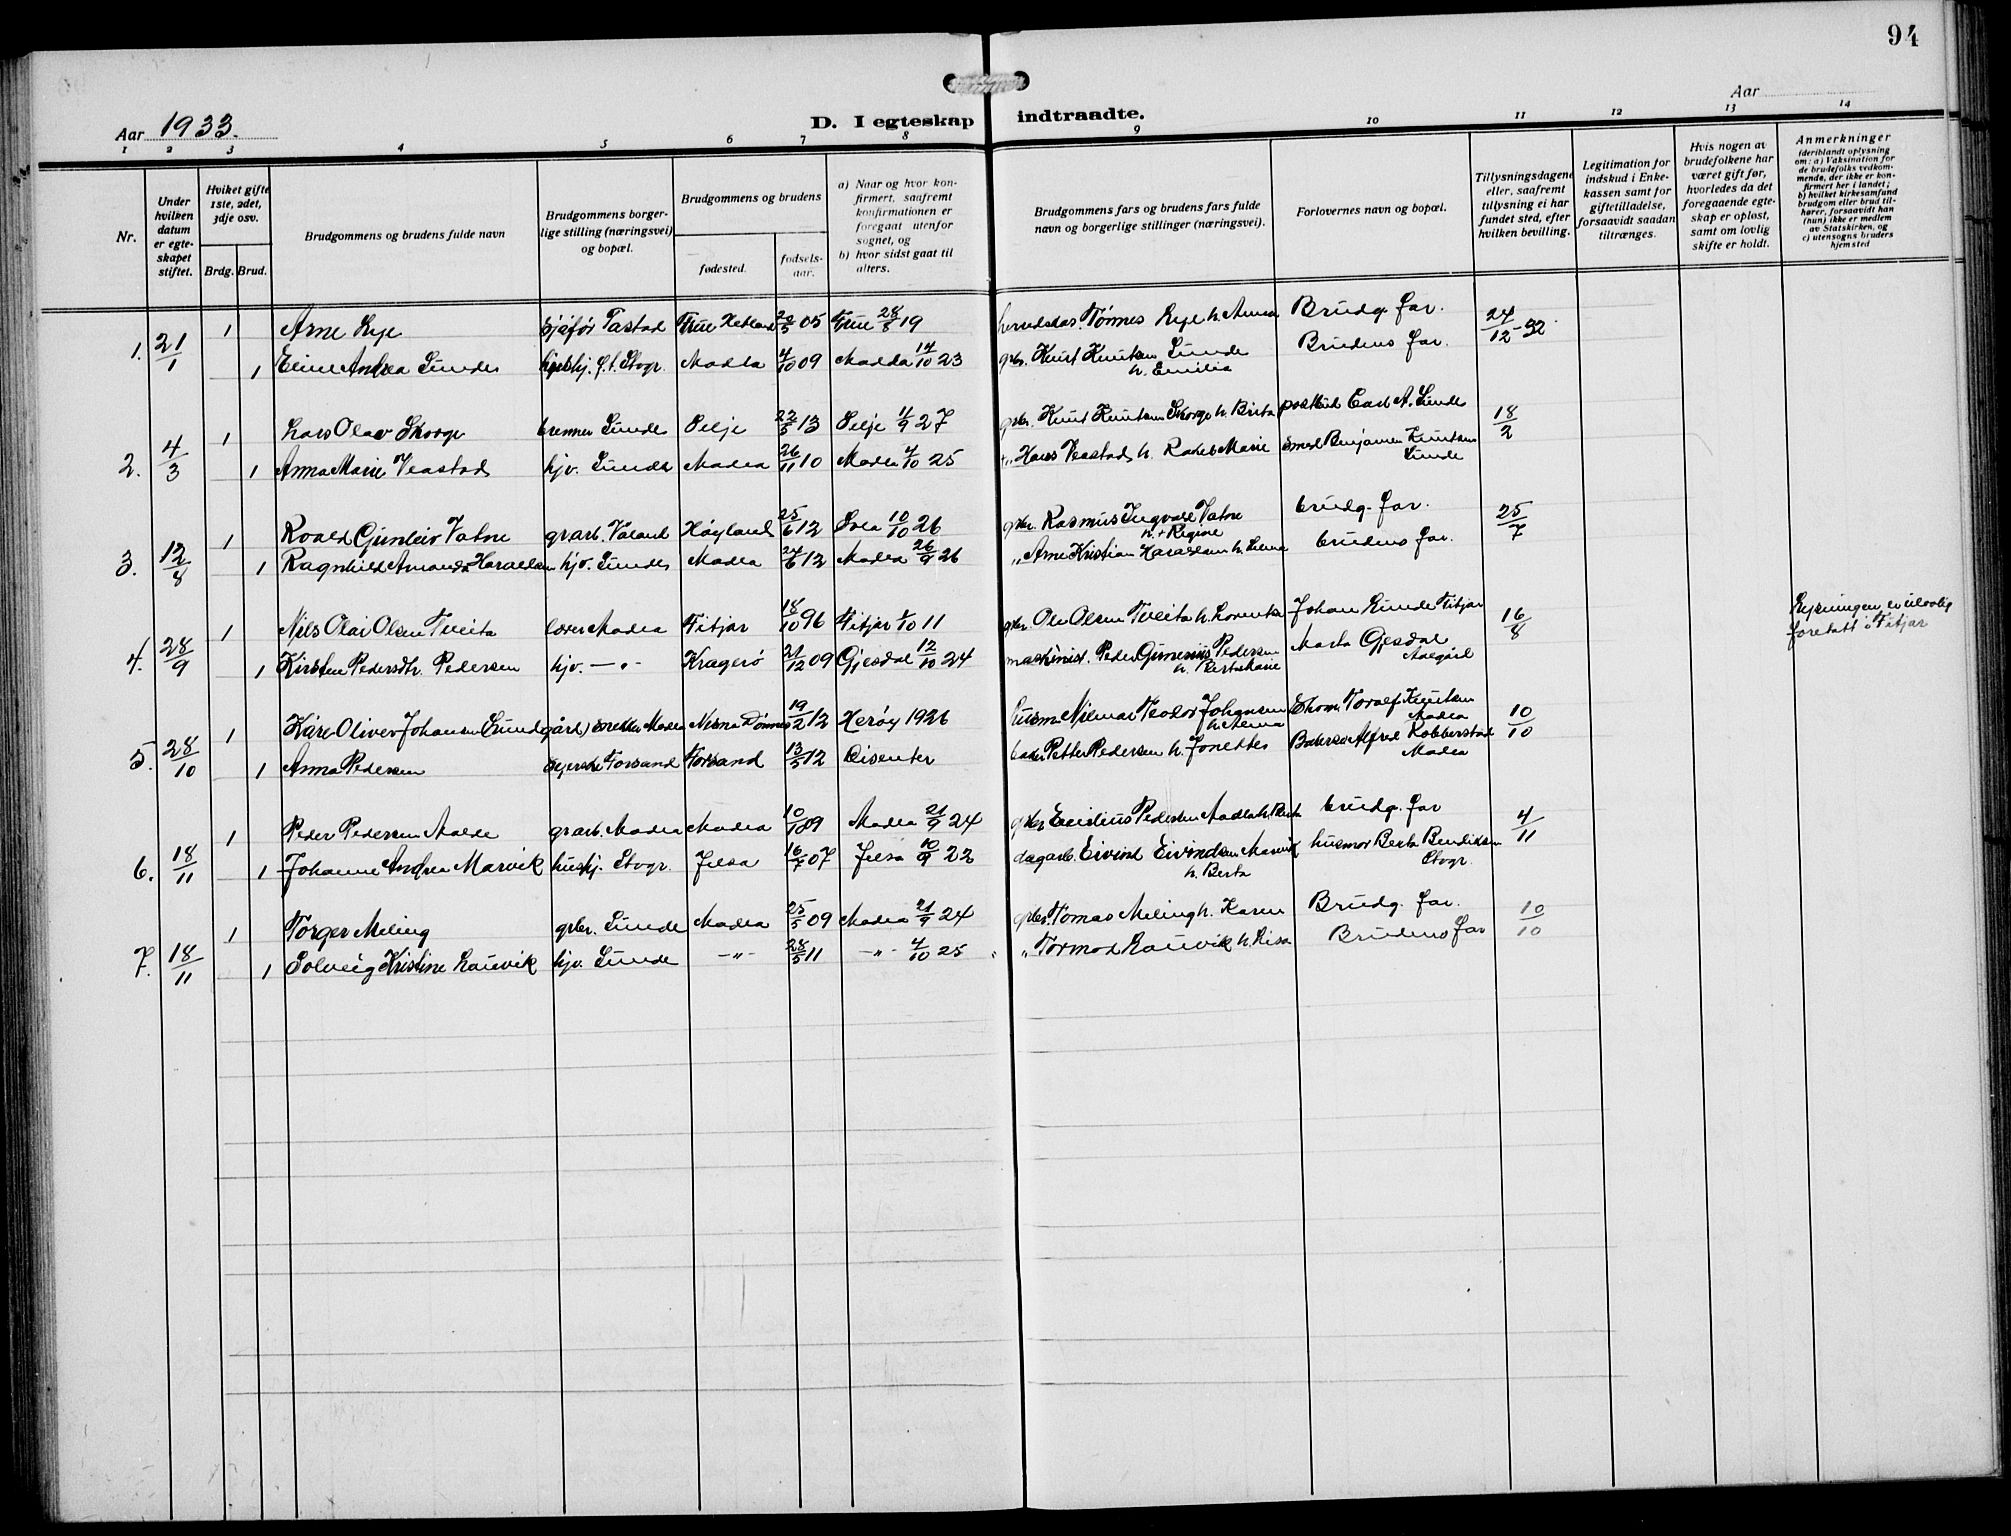 94
Aar 1933.
D. I egteskap indtraadte.
Aar
1 2 3 4 5 6 7 8 9 10 11 12 13 14
Nr.
Under hvilken datum er egteskapet stiftet.
Hviket gifte 1ste, 2det, 3dje osv.
Brdg. Brud.
Brudgommens og brudens fulde navn
Brudgommens borgerlige stilling (næringsvei) og bopæl.
Brudgommens og brudens
fødested.
fødselsaar.
a) Naar og hvor konfirmert, saafremt konfirmationen er foregaat utenfor sognet, og
b) hvor sidst gaat til alters.
Brudgommens fars og brudens fars fulde navn og borgerlige stillinger (næringsvei).
Forlovernes navn og bopæl.
Tillysningsdagene eller, saafremt tillysning ei har fundet sted, efter hvilken bevilling.
Legitimation for indskud i Enkekassen samt for giftetilladelse, forsaavidt saadan tiltrænges.
Hvis nogen av brudefolkene har været gift før, hvorledes da det foregaaende egteskap er opløst, samt om lovlig skifte er holdt.
Anmerkninger (deriblandt oplysning om: a) Vaksination for de brudefolks vedkommende, der ikke er konfirmert her i landet; b) hvilket kirkesamfund brudgom eller brud tilhører, forsaavidt han (hun) ikke er medlem av Statskirken, og c) utensogns bruders hjemsted
1. 21/1 1 Arne Rye sjåfør Tastad Frue Hetland 05 Frue 28/8 19 Tønnes Rye h. Anna Brudg. far. 24/12-32
1 Andrea Sunde Stvgr. Madla 4/10 09 Madla 14/10 23 gbr. Knut Knutsen Sunde h. Emilia Brudens far.
2. 4/3 1 Lars Olav Skorge Sunde Selje 22/5 13 Selje 4/9 27 gbr. Knut Knutsen Skorge h. Brita postbud Carl A. Sunde 18/2
1 Anna Marie Veastad hjv. Sunde Madla 26/11 10 Madla 4/10 25 " Hans Veastad h. Rakel Marie smed Benjamin Knutsen Sunde
3. 12/8 1 Roald Gunleiv Vatne grarb. Våland Høyland 25/6 12 10/10 26 gbr. Rasmus Ingvald Vatne h. Regine brudg. far. 25/7
1 Ragnhild Amanda Haraldsen hjv. Sunde Madla 24/6 12 Madla 26/9 26 " Arne Kristian Haraldsen h. brudens far.
4. 28/9 1 Nils Olai Olsen Tveita lærer Madla Fitjar 18/10 96 Fitjar 1/10 11 gbr. Ole Olsen Tveita h. Johan Rimde Fitjar 16/8 Lysningen er lovlig foretatt i Fitjar
1 Kirsten Pedersdtr. Pedersen hjv. — " — Kragerø 21/12 09 Gjesdal 12/10 24 maskinist. Peder Gunerius Pedersen h. Berta Marie Marta Gjesdal Aalgård
5. 28/10 1 Kåre Oliver Johansen (Lundgård) snekker Madla Dønnes 19/2 12 Herøy 1926 Hilmar Teodor Johansen h. Anna Torolf Knutsen Madla 10/10
1 Anna Pedersen Forsand Forsand 13/5 12 Disenter baker Petter Pedersen h. Jonette Alfred Robberstad Madla
6. 18/11 1 Peder Pedersen Aalde grarb. Madla Madla 09 Madla 21/9 24 gbr. Pedersen h. Berta brudg. far 4/11
1 Johanne Andrea Marvik hushj. Stvgr. Jelsa 16/7 07 Jelsa 10/9 22 dagarb. Eivind Eivindsen Marvik h. Berta husmor Berta Bendiksen Stvgr.
7. 18/11 1 Torger Meling gbr. Sunde Madla 25/5 09 Madla 21/9 24 gbr. Tomas Meling h. Karen Brudg. far. 10/10
1 Solveig Kristine Lauvik hjv. Sunde — " — 28/5 11 — " — 4/10 25 " Tormod Lauvik h. Lisa Brudens far